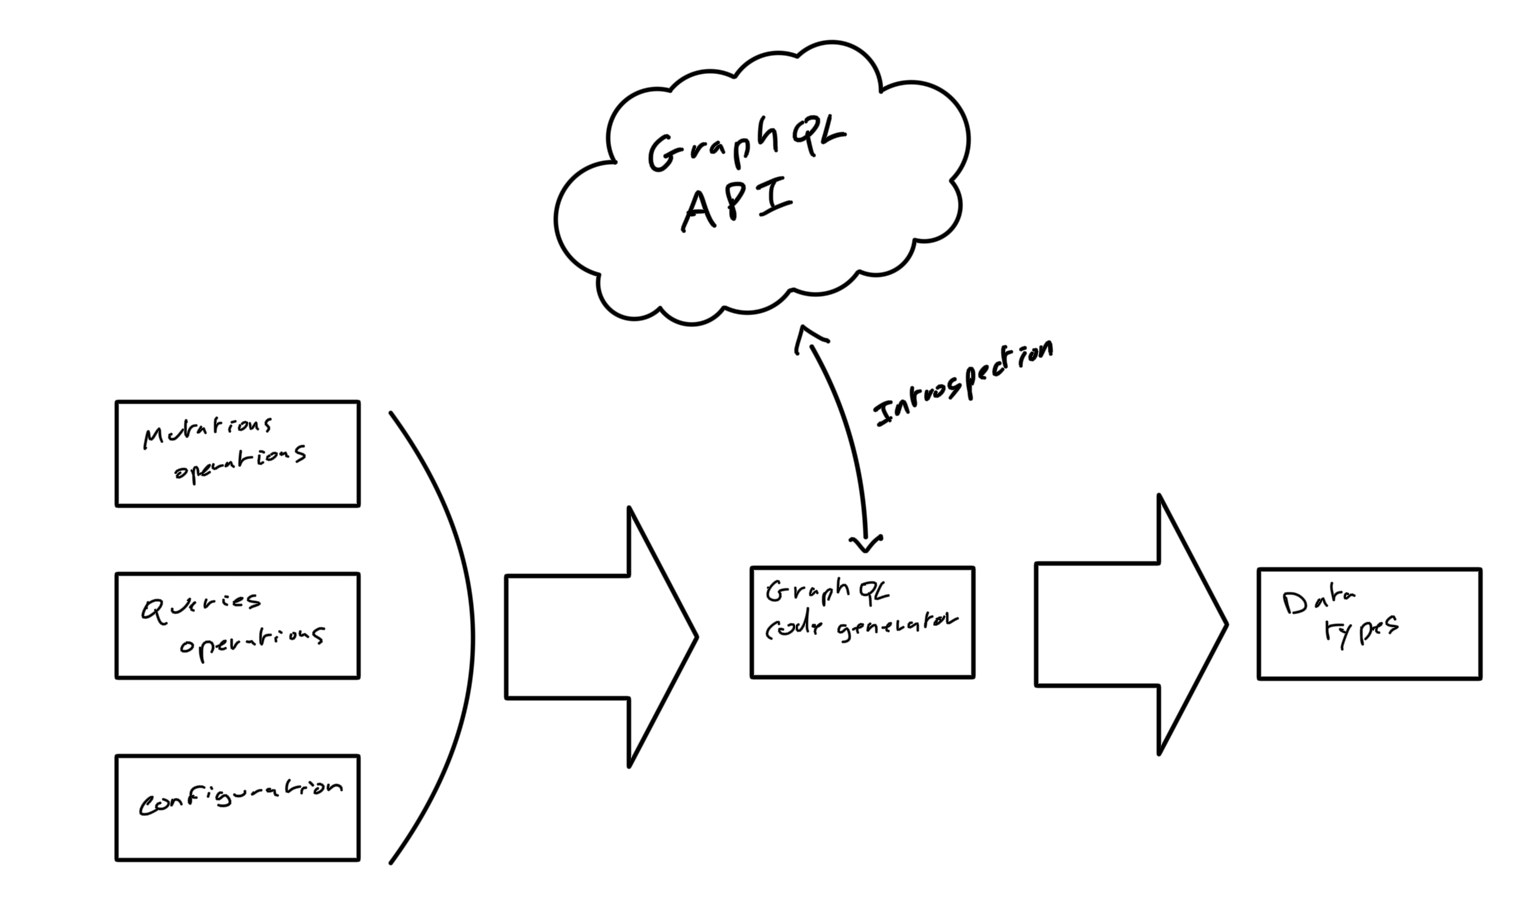 GraphQL
API
Introspection
Mutations
operations
Queries
operations
Configuration
GraphQL
code generator
Data
types